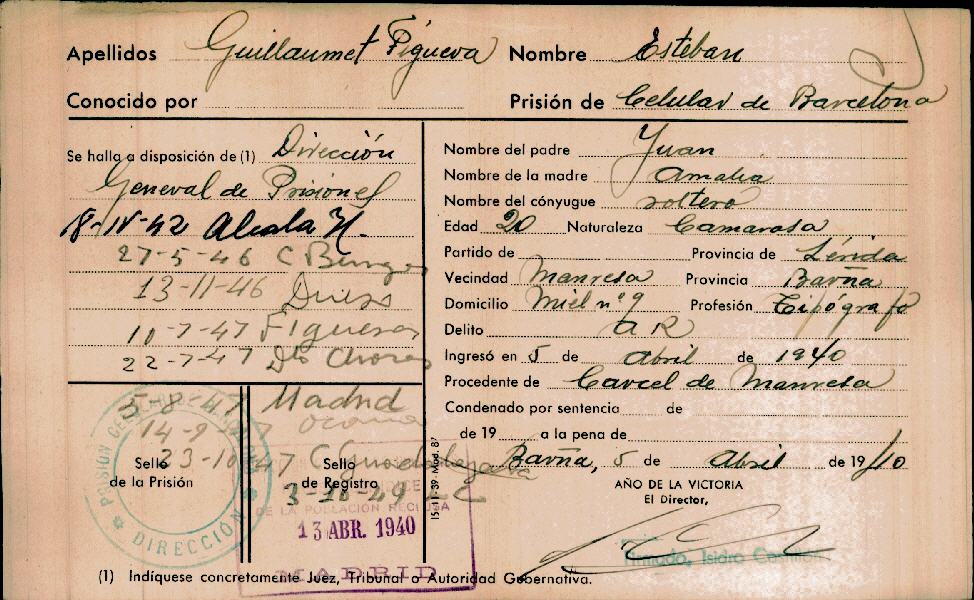 Apellidos Guillaumet Figuera Nombre Esteban
Conocido por Prisión de Celular de Barcelona
Se halla a disposición de (1) Dirección
General de Prisiones
8-IV-42 Alcala H.
27-5-46 C Burgos
13-11-46
10-7-47 Figueras
22-7-47 Dto
5-8-47 Madrid
14-9-47 Ocaña
23-10-47 C Guadalajara
3-10-49 LC
Sello de la Prisión
Sello de Registro
PRISION CELULAR
DIRECCIÓN
DE LA POBLACIÓN RECLUSA
13 ABR. 1940
MADRID
15-11-39-Mod. 87
Nombre del padre Juan
Nombre de la madre Amalia
Nombre del cónyugue soltero
Edad 20 Naturaleza Camarasa
Partido de Provincia de Lérida
Vecindad Manresa Provincia Barña
Domicilio Miel nº 9 Profesión Tipógrafo
Delito A R
Ingresó en 5 de Abril de 1940
Procedente de Carcel de Manresa
Condenado por sentencia de
de 19 a la pena de
Barña, 5 de Abril de 19/40
AÑO DE LA VICTORIA
El Director,
Firmado, Isidro
(1) Indíquese concretamente Juez, Tribunal o Autoridad Gobernativa.